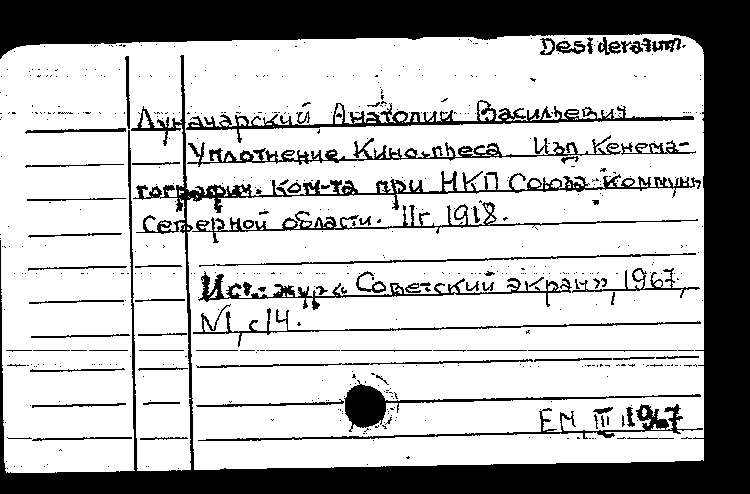 Desideratum.
Луначарский, Анатолий Васильевич
Уплотнение. Кино-пьеса. Изд. Кенема-
тографич. Ком-та при НКП Союза коммуны
Северной области. Пг, 1918.
Ист.: жур. «Советский экран», 1967,
N1, с14.
ЕМ, III 1967